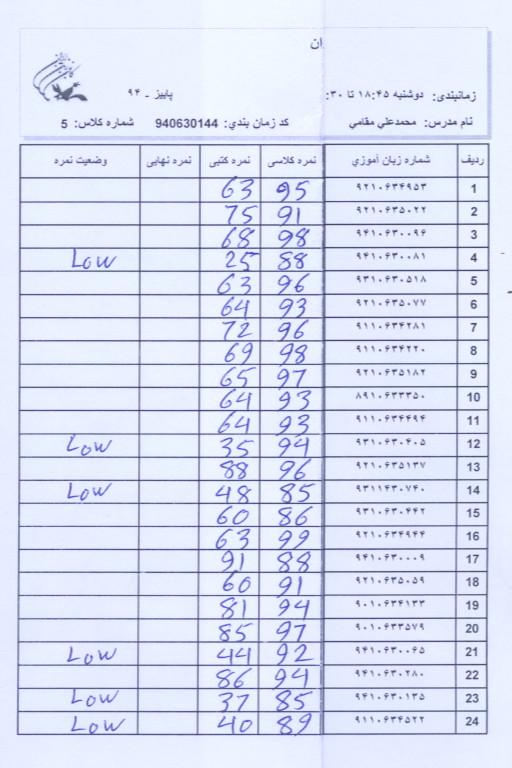 ان
زمانبندی: دوشنبه ۱۸:۴۵ تا ۳۰: پاییز - ۹۴
نام مدرس: محمدعلي مقامي کد زمان بندي: 940630144 شماره کلاس: 5
ردیف شماره زبان آموزي نمره کلاسی نمره کتبی نمره نهایی وضعیت نمره
1 ۹۲۱۰۶۳۴۹۵۳ 95 63
2 ۹۲۱۰۶۳۵۰۲۲ 91 75
3 ۹۴۱۰۶۳۰۰۹۶ 98 68
4 ۹۴۱۰۶۳۰۰۸۱ 88 25 Low
5 ۹۳۱۰۶۳۰۵۱۸ 96 63
6 ۹۲۱۰۶۳۵۰۷۷ 93 64
7 ۹۱۱۰۶۳۴۲۸۱ 96 72
8 ۹۱۱۰۶۳۴۲۲۰ 98 69
9 ۹۲۱۰۶۳۵۱۸۲ 97 65
10 ۸۹۱۰۶۳۳۳۵۰ 93 64
11 ۹۱۱۰۶۳۴۴۹۴ 93 64
12 ۹۳۱۰۶۳۰۴۰۵ 94 35 Low
13 ۹۲۱۰۶۳۵۱۳۷ 96 88
14 ۹۳۱۱۴۳۰۷۴۰ 85 48 Low
15 ۹۳۱۰۶۳۰۴۴۲ 86 60
16 ۹۲۱۰۶۳۴۹۴۴ 99 63
17 ۹۴۱۰۶۳۰۰۰۹ 88 91
18 ۹۲۱۰۶۳۵۰۵۹ 91 60
19 ۹۰۱۰۶۳۴۱۳۳ 94 81
20 ۹۰۱۰۶۳۳۵۷۹ 97 85
21 ۹۴۱۰۶۳۰۰۶۵ 92 44 Low
22 ۹۴۱۰۶۳۰۲۸۰ 94 86
23 ۹۴۱۰۶۳۰۱۳۵ 85 37 Low
24 ۹۱۱۰۶۳۴۵۲۲ 89 40 Low